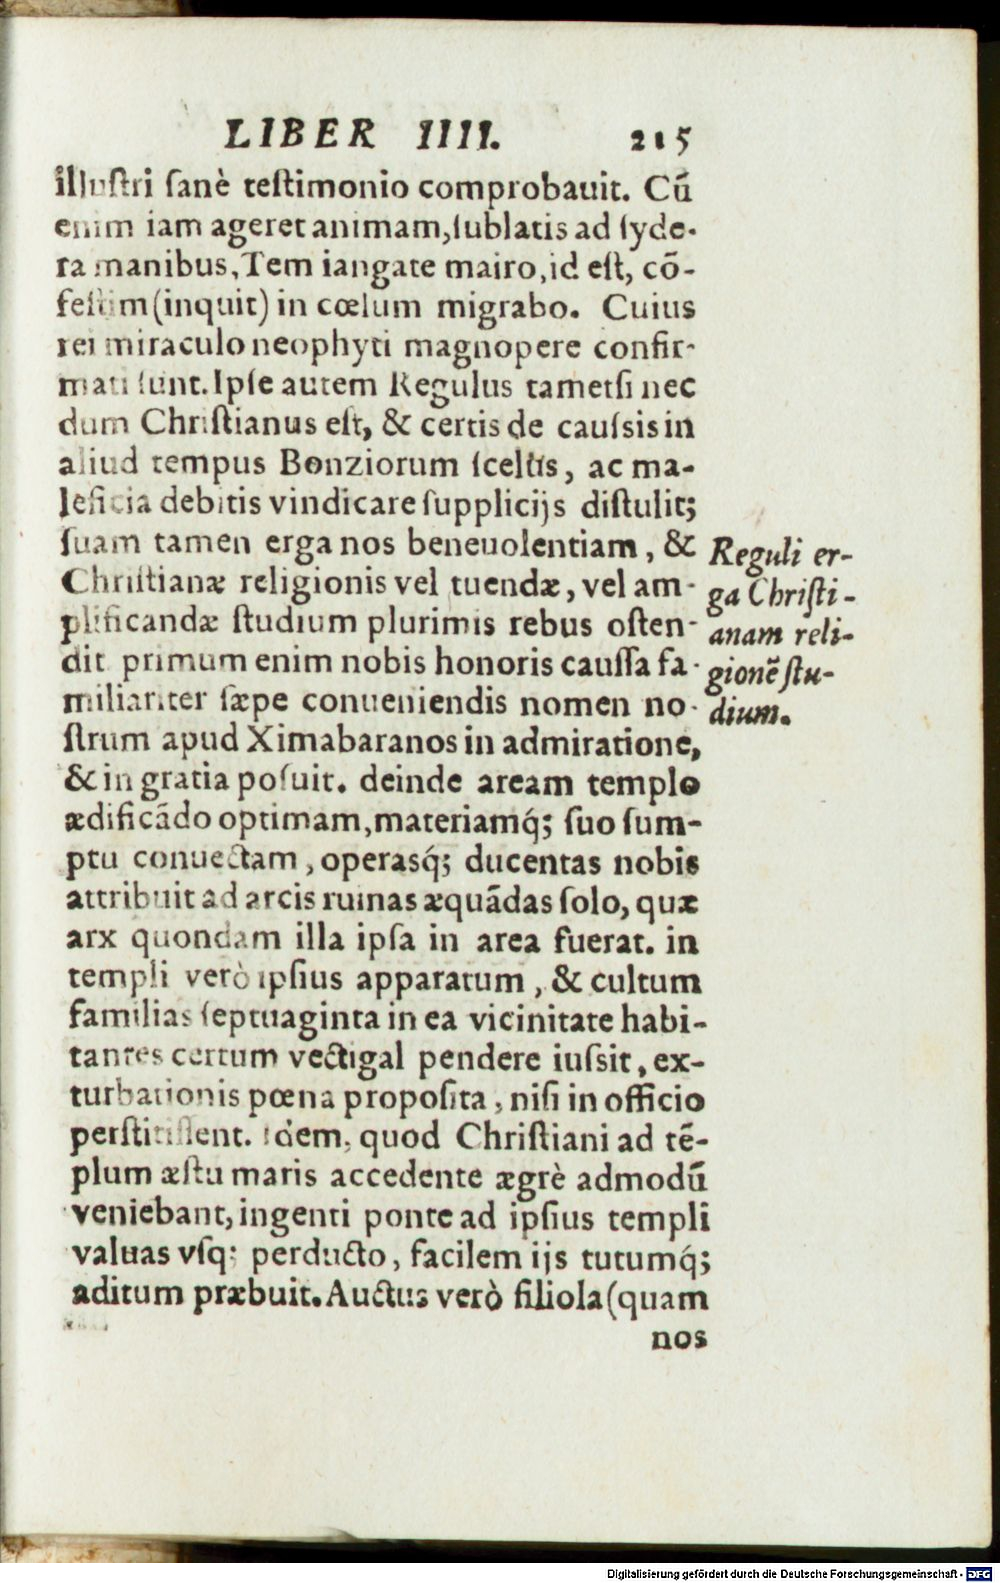 LIBER IIII. 215
illuſtri ſanè teſtimonio comprobauit. Cũ
enim iam ageret animam, ſublatis ad ſyde-
ra manibus, Tem iangate mairo, id eſt, cõ-
feſtim (inquit) in cœlum migrabo. Cuius
rei miraculo neophyti magnopere confir-
mati ſunt. Ipſe autem Regulus tametſi nec
dum Chriſtianus eſt, & certis de cauſsis in
aliud tempus Bonziorum ſcelus, ac ma-
leficia debitis vindicare ſupplicijs diſtulit;
ſuam tamen erga nos beneuolentiam, &
Chriſtianæ religionis vel tuendæ, vel am-
plificandæ ſtudium plurimis rebus oſten-
dit primum enim nobis honoris cauſſa fa-
miliariter ſæpe conueniendis nomen no-
ſtrum apud Ximabaranos in admiratione,
& in gratia poſuit. deinde aream templo
ædificãdo optimam, materiamq́; ſuo ſum-
ptu conuectam, operasq́; ducentas nobis
attribuit ad arcis ruinas æquãdas ſolo, quæ
arx quondam illa ipſa in area fuerat. in
templi verò ipſius apparatum, & cultum
familias ſeptuaginta in ea vicinitate habi-
tantes certum vectigal pendere iuſsit, ex-
turbationis pœna propoſita, niſi in officio
perſtitiſſent. Idem, quod Chriſtiani ad tẽ-
plum æſtu maris accedente ægrè admodũ
veniebant, ingenti ponte ad ipſius templi
valuas vſq; perducto, facilem ijs tutumq́;
aditum præbuit. Auctus verò filiola (quam
nos
Reguli er-
ga Chriſti-
anam reli-
gionẽ ſtu-
dium.
Digitalisierung gefördert durch die Deutsche Forschungsgemeinschaft - DFG